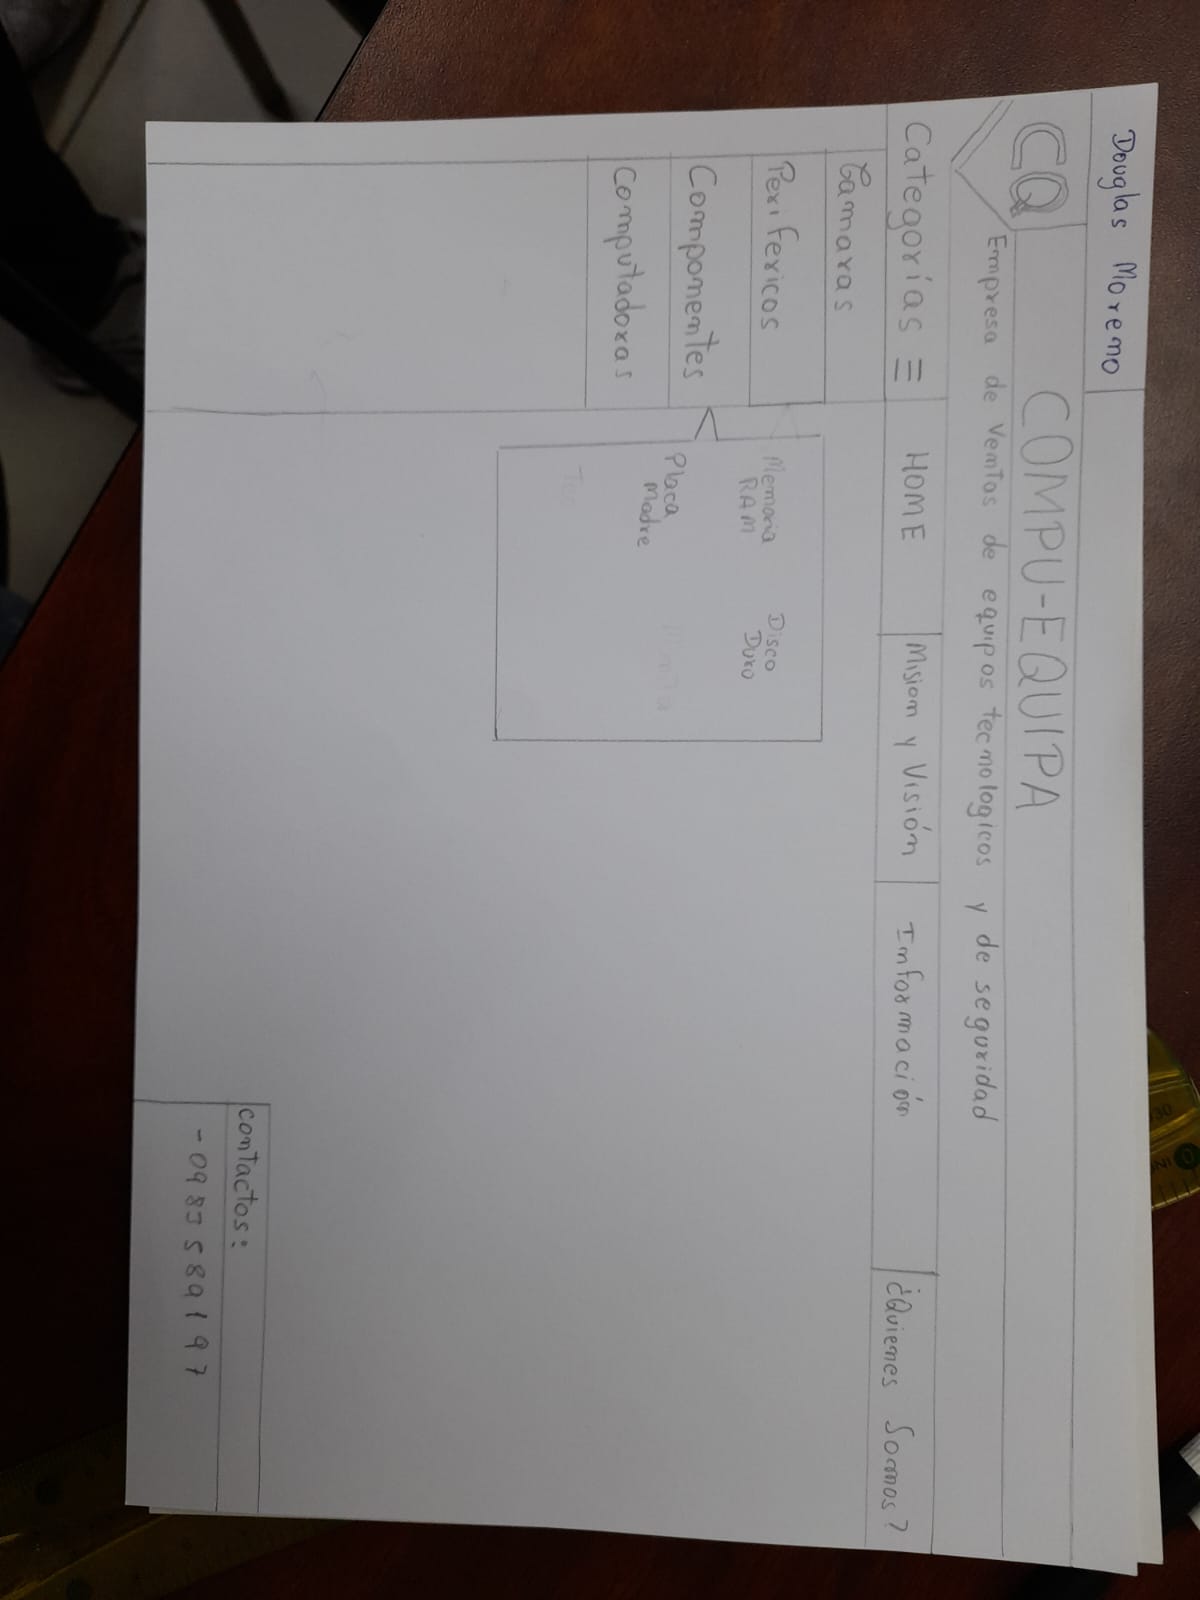 Douglas Moreno
CQ COMPU-EQUIPA
Empresa de Ventas de equipos tecnologicos y de seguridad
Categorías ☰ HOME Mision y Visión Información ¿Quienes Somos?
Camaras
Perifericos
Componentes
Computadoras
Memoria
RAM
Disco
Duro
Placa
Madre
Contactos:
- 0983589197